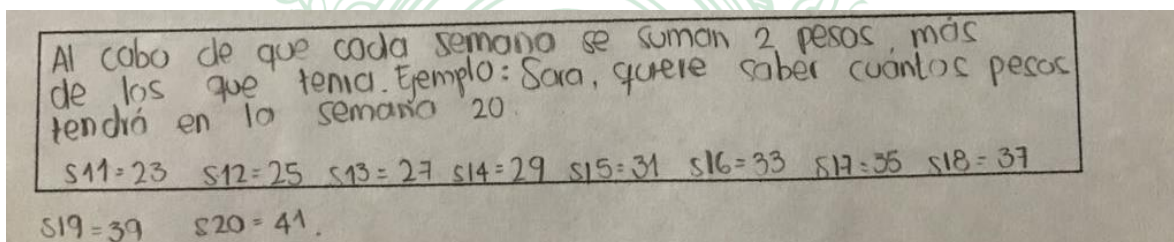 Al cabo de que cada semana se suman 2 pesos, más
de los que tenia. Ejemplo: Sara, quiere saber cuántos pesos
tendrá en la semana 20.
S11=23 S12=25 S13=27 S14=29 S15=31 S16=33 S17=35 S18=37
S19=39 S20=41.